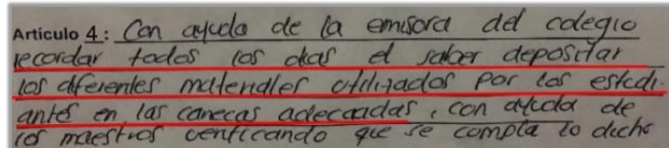 Articulo 4: Con ayuda de la emisora del colegio
recordar todos los dias el saber depositar
los diferentes materiales utilizados por los estudi
antes en las canecas adecuadas, con ayuda de
los maestros verificando que se cumpla lo dicho